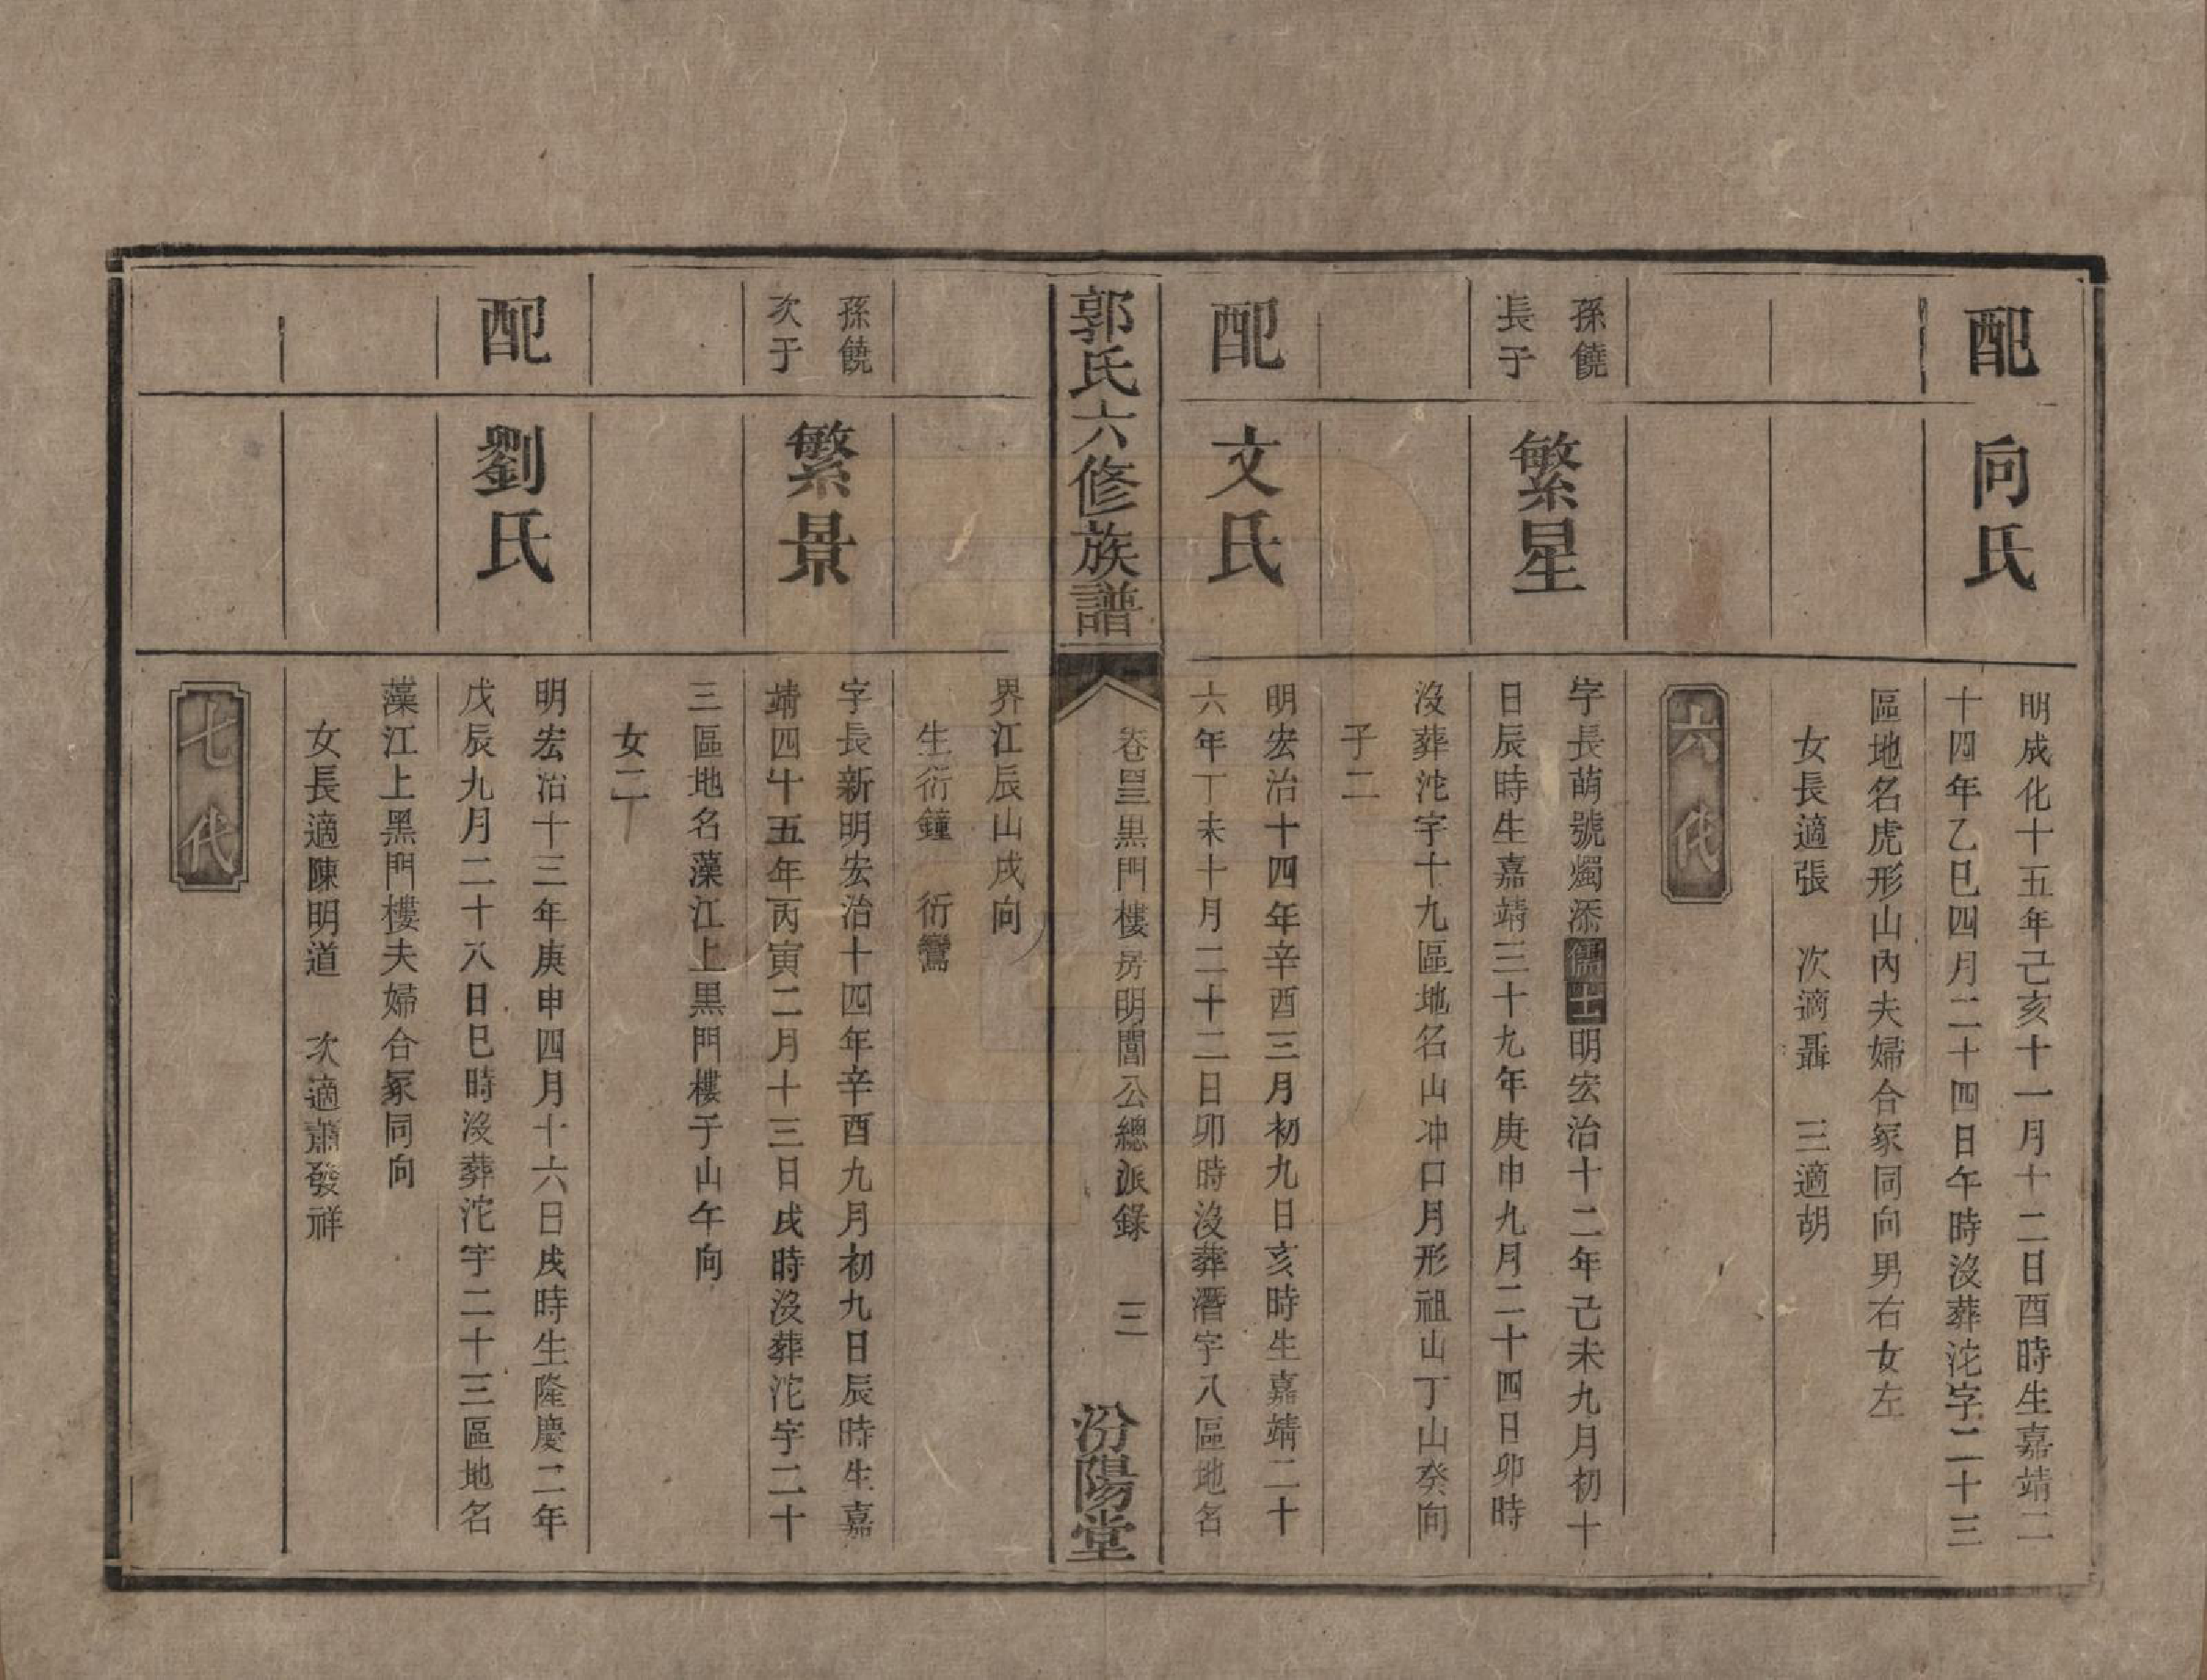 配
向氏
明成化十五年己亥十一月十二日酉時生嘉靖二
十四年乙巳四月二十四日午時沒葬沱字二十三
區地名虎形山內夫婦合冢同向男右女左
女長適張　次適聶　三適胡
六代
孫饒
長于
繁星
字長萌號燭添儒士明宏治十二年己未九月初十
日辰時生嘉靖三十九年庚申九月二十四日卯時
沒葬沱字十九區地名山冲口月形祖山丁山癸向
子二
配
文氏
明宏治十四年辛酉三月初九日亥時生嘉靖二十
六年丁未十月二十二日卯時沒葬潛字八區地名
郭氏六修族譜
卷黑門樓房明公總派錄　三
汾陽堂
界江辰山戌向
生衍鐘　衍鸞
孫饒
次于
繁景
字長新明宏治十四年辛酉九月初九日辰時生嘉
靖四十五年丙寅二月十三日戌時沒葬沱字二十
三區地名藻江上黑門樓子山午向
女二
配
劉氏
明宏治十三年庚申四月十六日戌時生隆慶二年
戊辰九月二十八日巳時沒葬沱字二十三區地名
藻江上黑門樓夫婦合冢同向
女長適陳明道　次適蕭發祥
七代